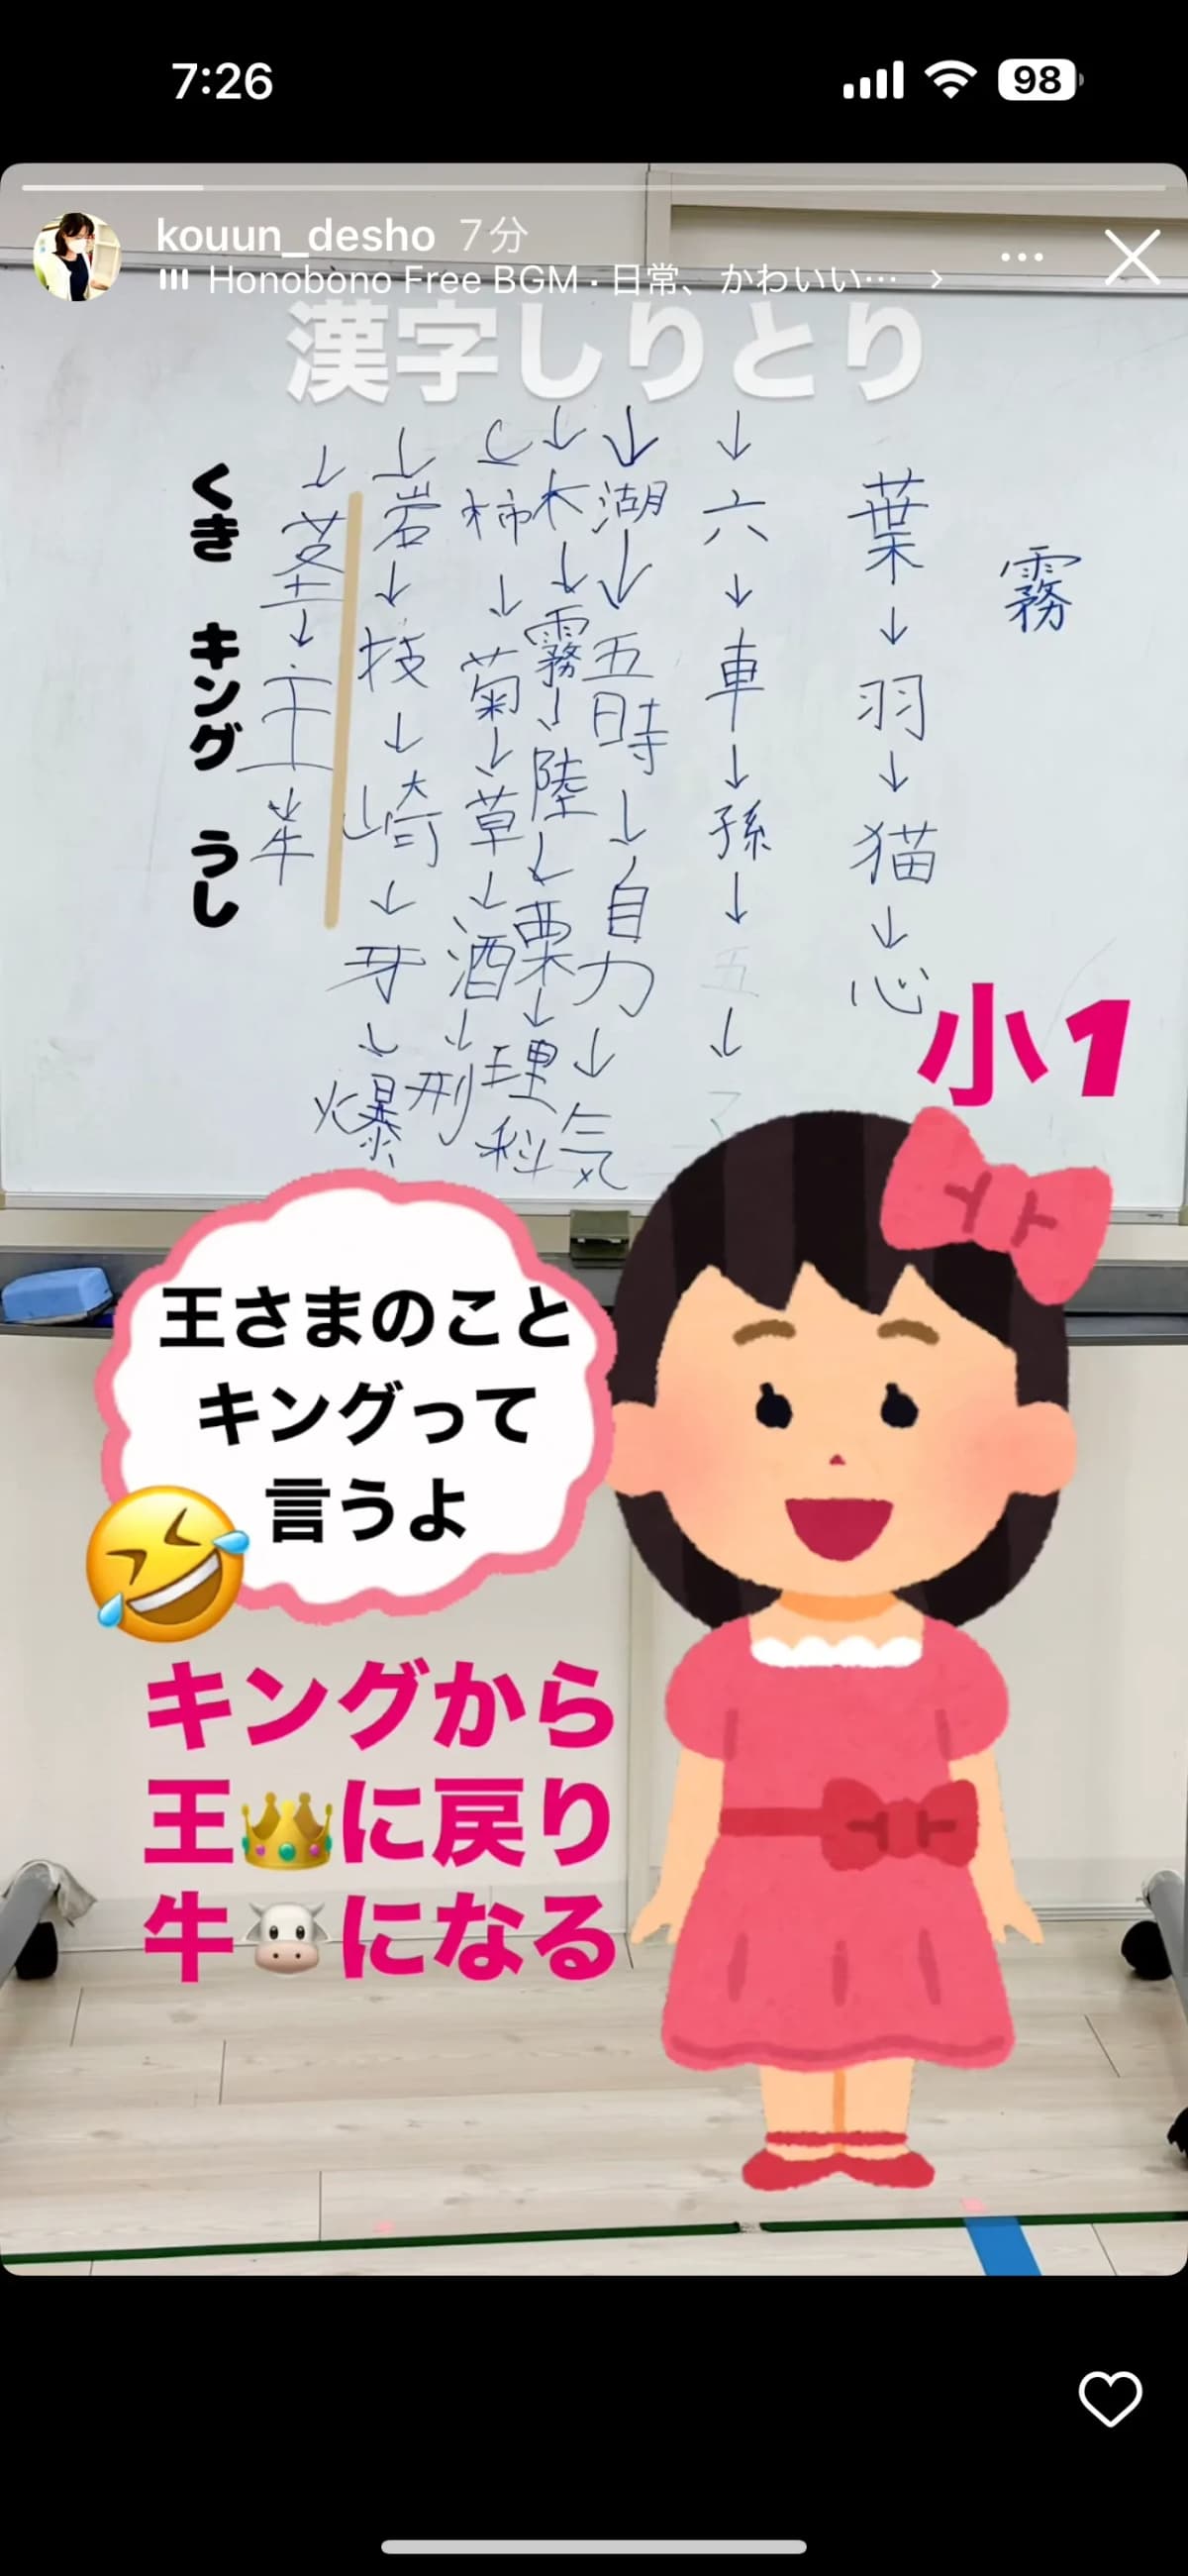 7:26
98
kouun_desho 7分
Honobono Free BGM・日常、かわいい… >
漢字しりとり
霧
葉↓羽↓猫↓心
↓六↓車↓孫↓五↓
↓湖↓五時↓自力↓気
↓木↓霧↓陸↓栗↓理科
柿↓菊↓草↓酒↓刑
↓岩↓技↓崎↓牙↓爆
↓茎↓王↓牛
くき キング うし
小1
王さまのこと
キングって
言うよ
キングから
王👑に戻り
牛🐮になる